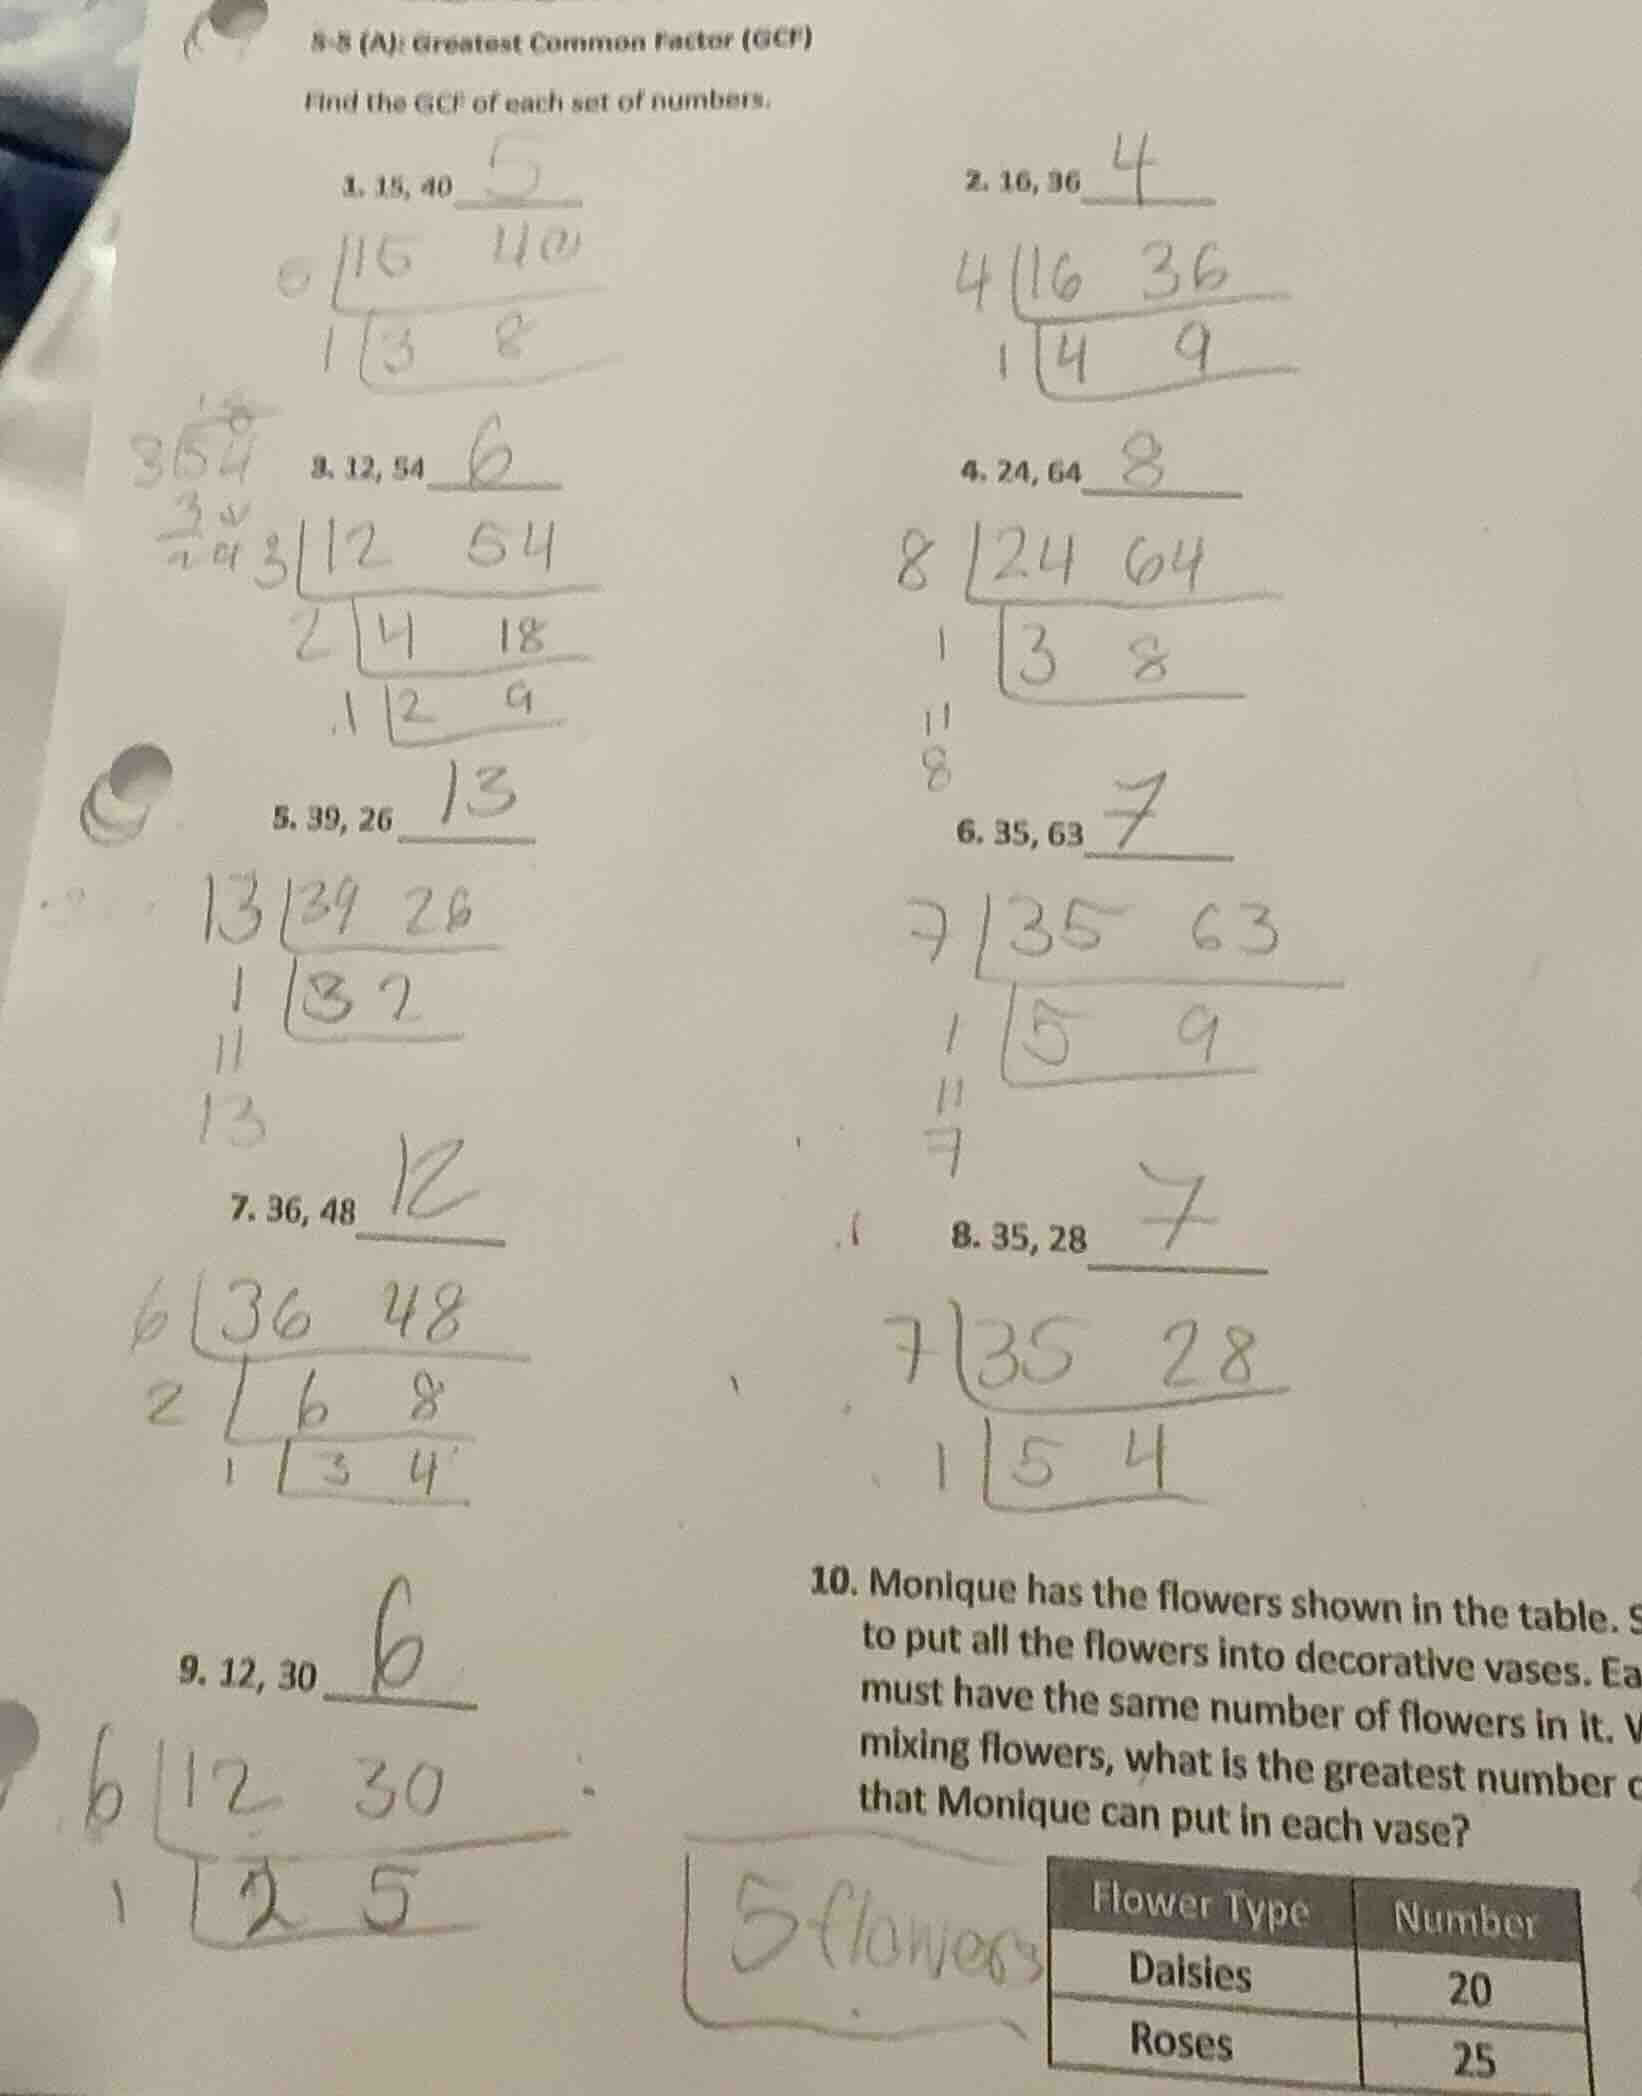 5-5 (A): Greatest Common Factor (GCF)
Find the GCF of each set of numbers.
1. 15, 40 5
5 15 40
1 3 8
2. 16, 36 4
4 16 36
1 4 9
3. 12, 54 6
18
3 54
3
24
3 12 54
2 4 18
1 2 9
4. 24, 64 8
8 24 64
1 3 8
11
8
5. 39, 26 13
13 39 26
1 3 2
11
13
6. 35, 63 7
7 35 63
1 5 9
11
7
7. 36, 48 12
6 36 48
2 6 8
1 3 4
8. 35, 28 7
7 35 28
1 5 4
9. 12, 30 6
6 12 30
1 2 5
10. Monique has the flowers shown in the table.
to put all the flowers into decorative vases.
must have the same number of flowers in it.
mixing flowers, what is the greatest number
that Monique can put in each vase?
5 flowers
Flower Type Number
Daisies 20
Roses 25